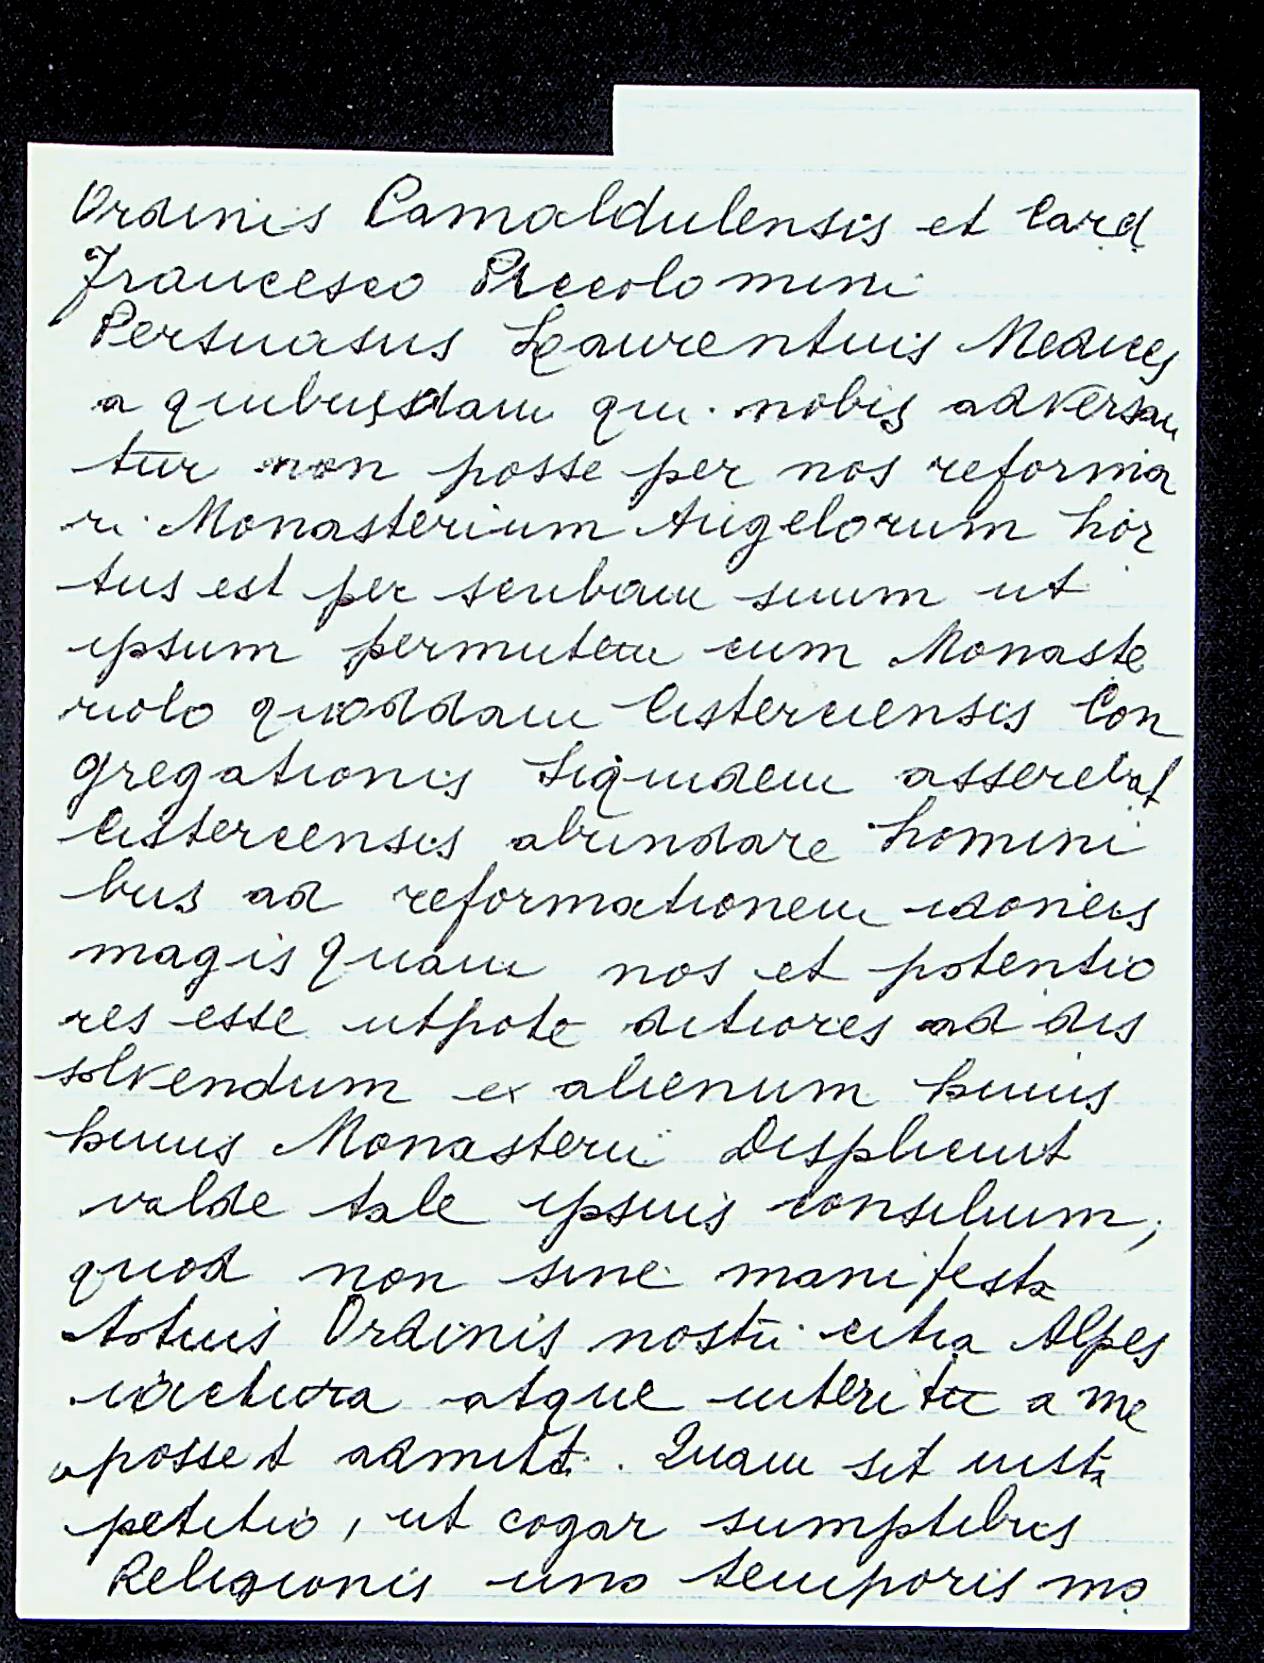 Ordinis Camaldulensis et Card
Francesco Piccolomini
Persuasus Laurentius Medices
a quibusdam qui nobis adversan
tur non posse per nos reforma
ri Monasterium Angelorum hor
tus est per scribam suum ut
ipsum permutem cum Monaste
riolo quoddam Cisterciensis Con
gregationis Siquidem asserebat
Cistercensis abundare homini
bus ad reformationem idoneis
magis quam nos et potentio
res esse utpote ditiores ad dis
solvendum ex alienum huius
huius Monasterii Displicuit
valde tale ipsius consilium,
quod non sine manifesta
totius Ordinis nostri citra Alpes
iactura atque interitu a me
posset admitti. Quam sit iusta
petitio, ut cogar sumptibus
Religionis uno temporis mo